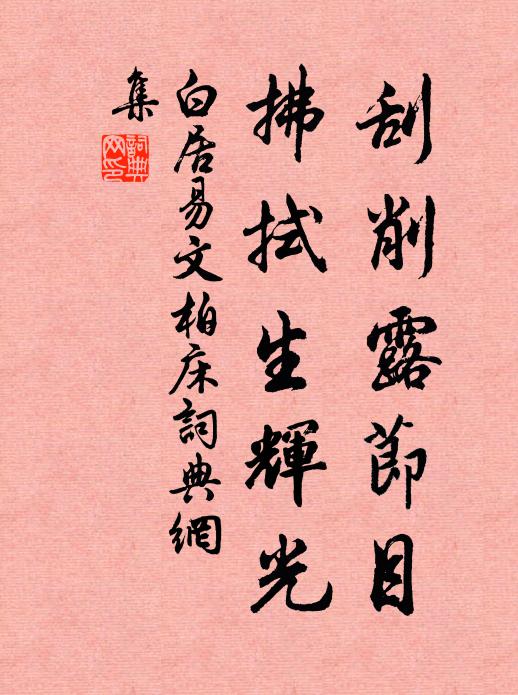 刮削露節目
拂拭生輝光
白居易文柏床詞典網
集
詞典
网印